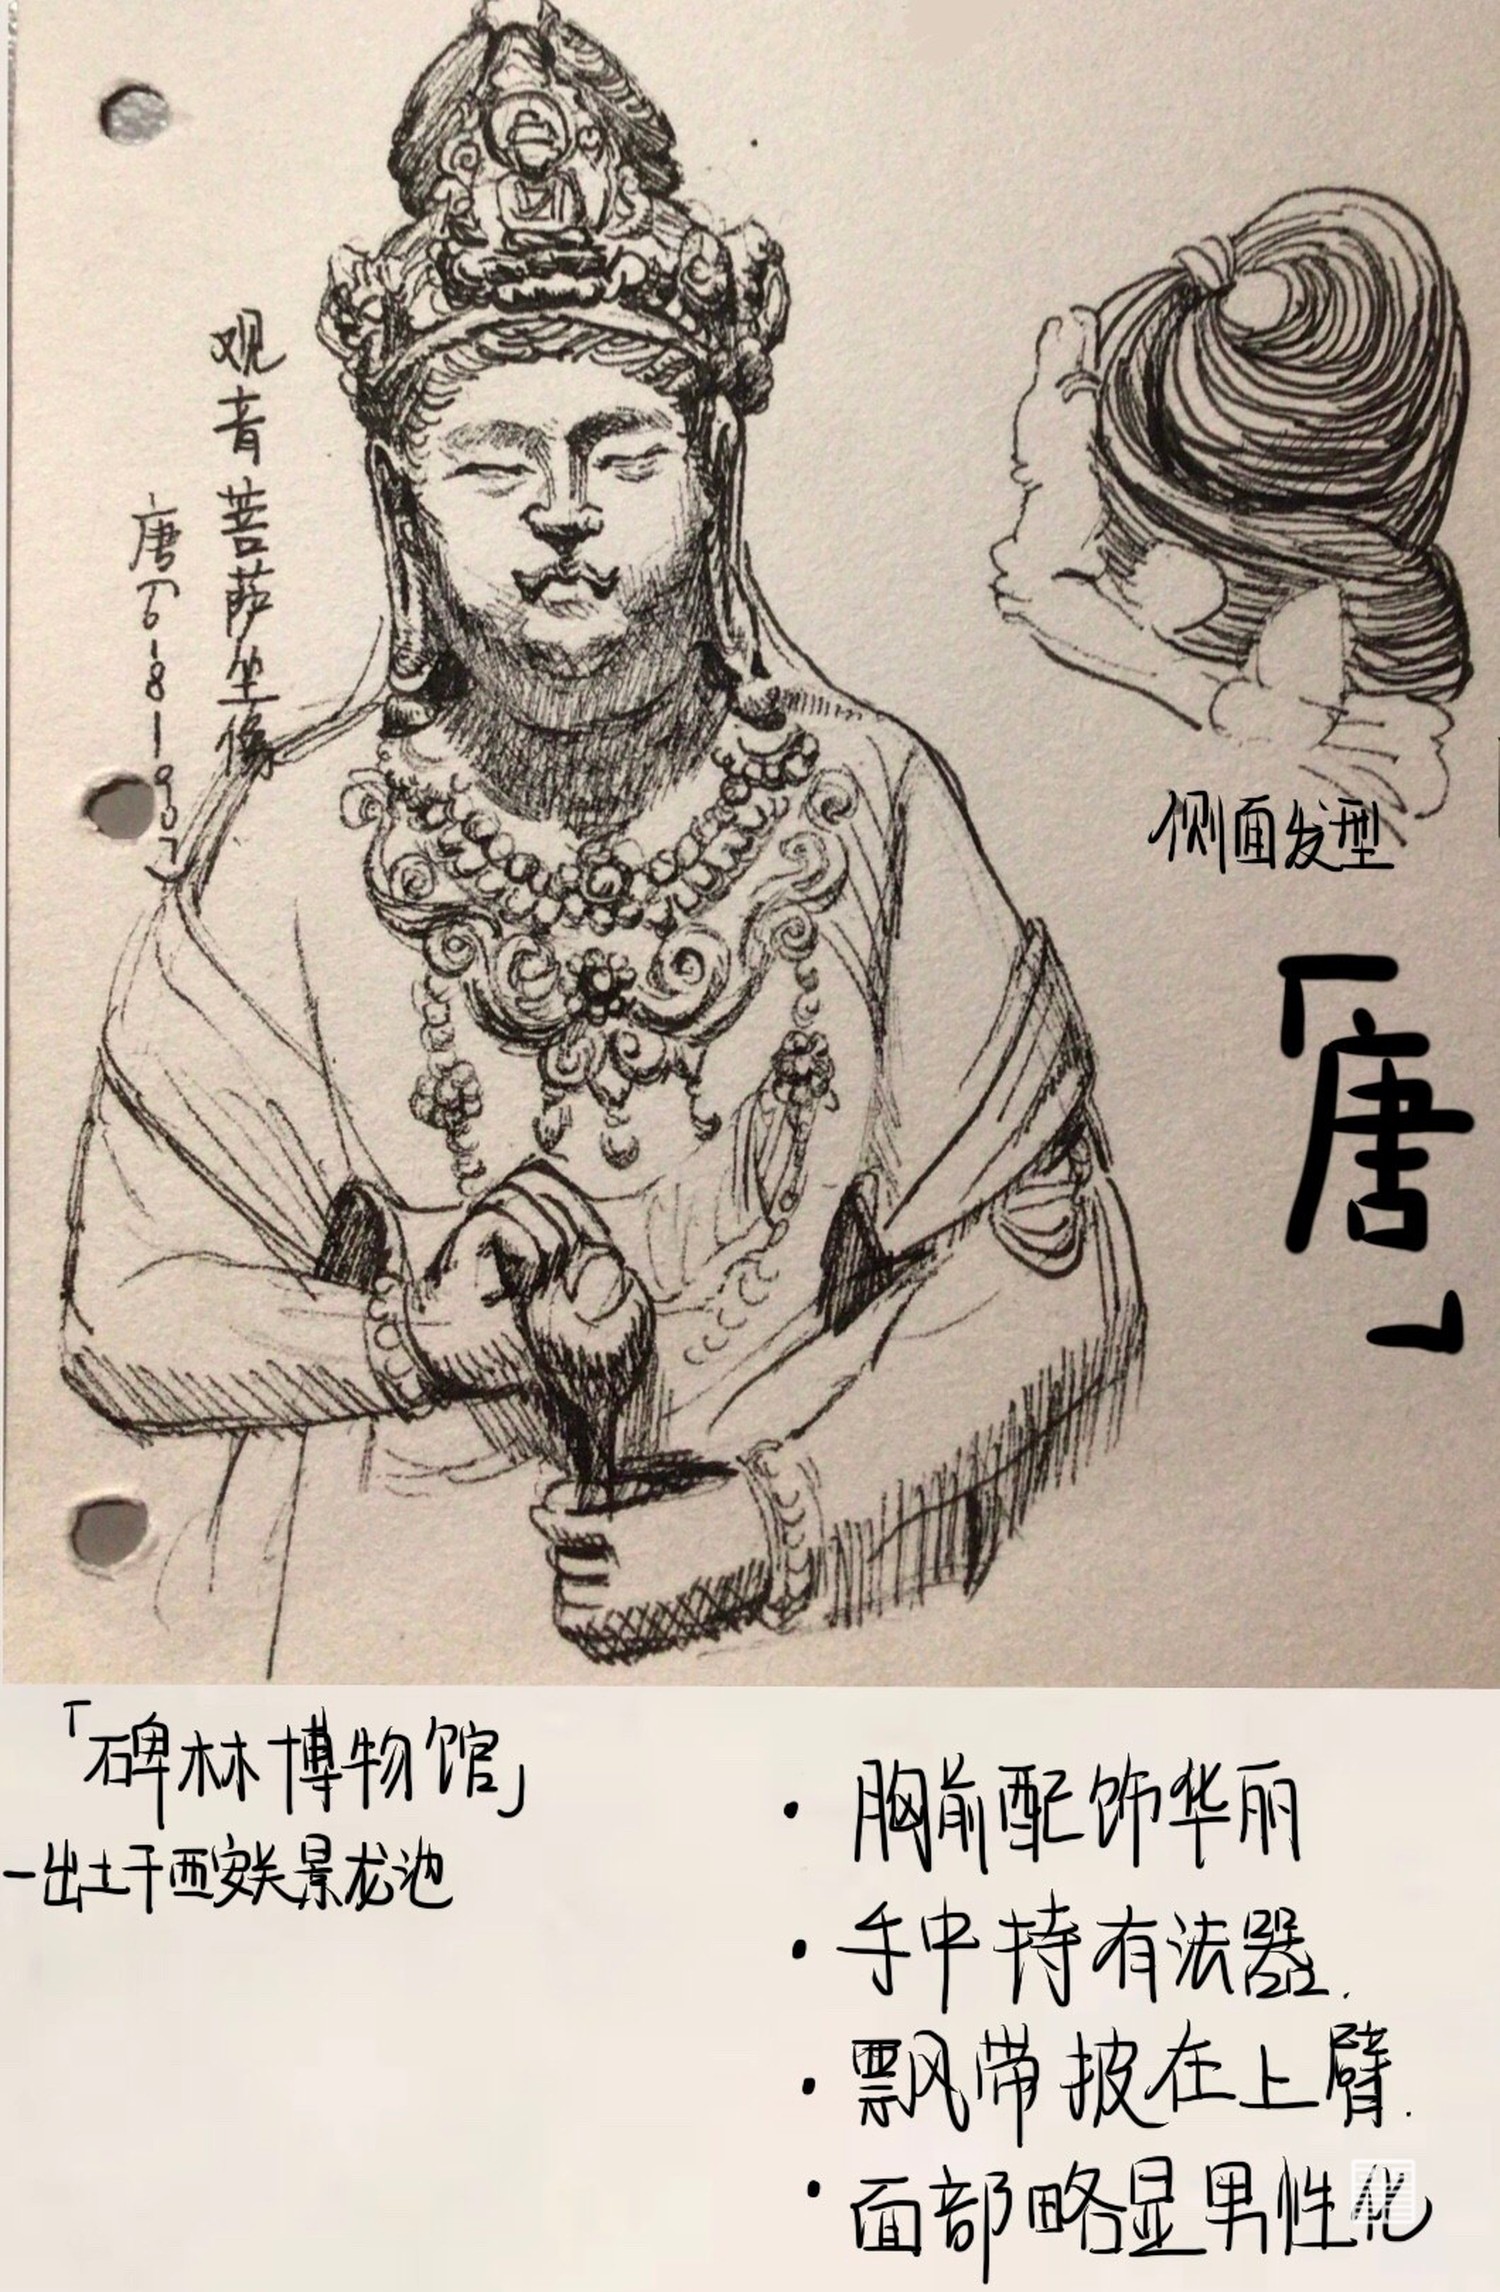 观音菩萨坐像
唐(618-907)
侧面发型
「唐」
「碑林博物馆」
-出土于西安关景龙池
· 胸前配饰华丽
· 手中持有法器.
· 飘带披在上臂.
· 面部略显男性化